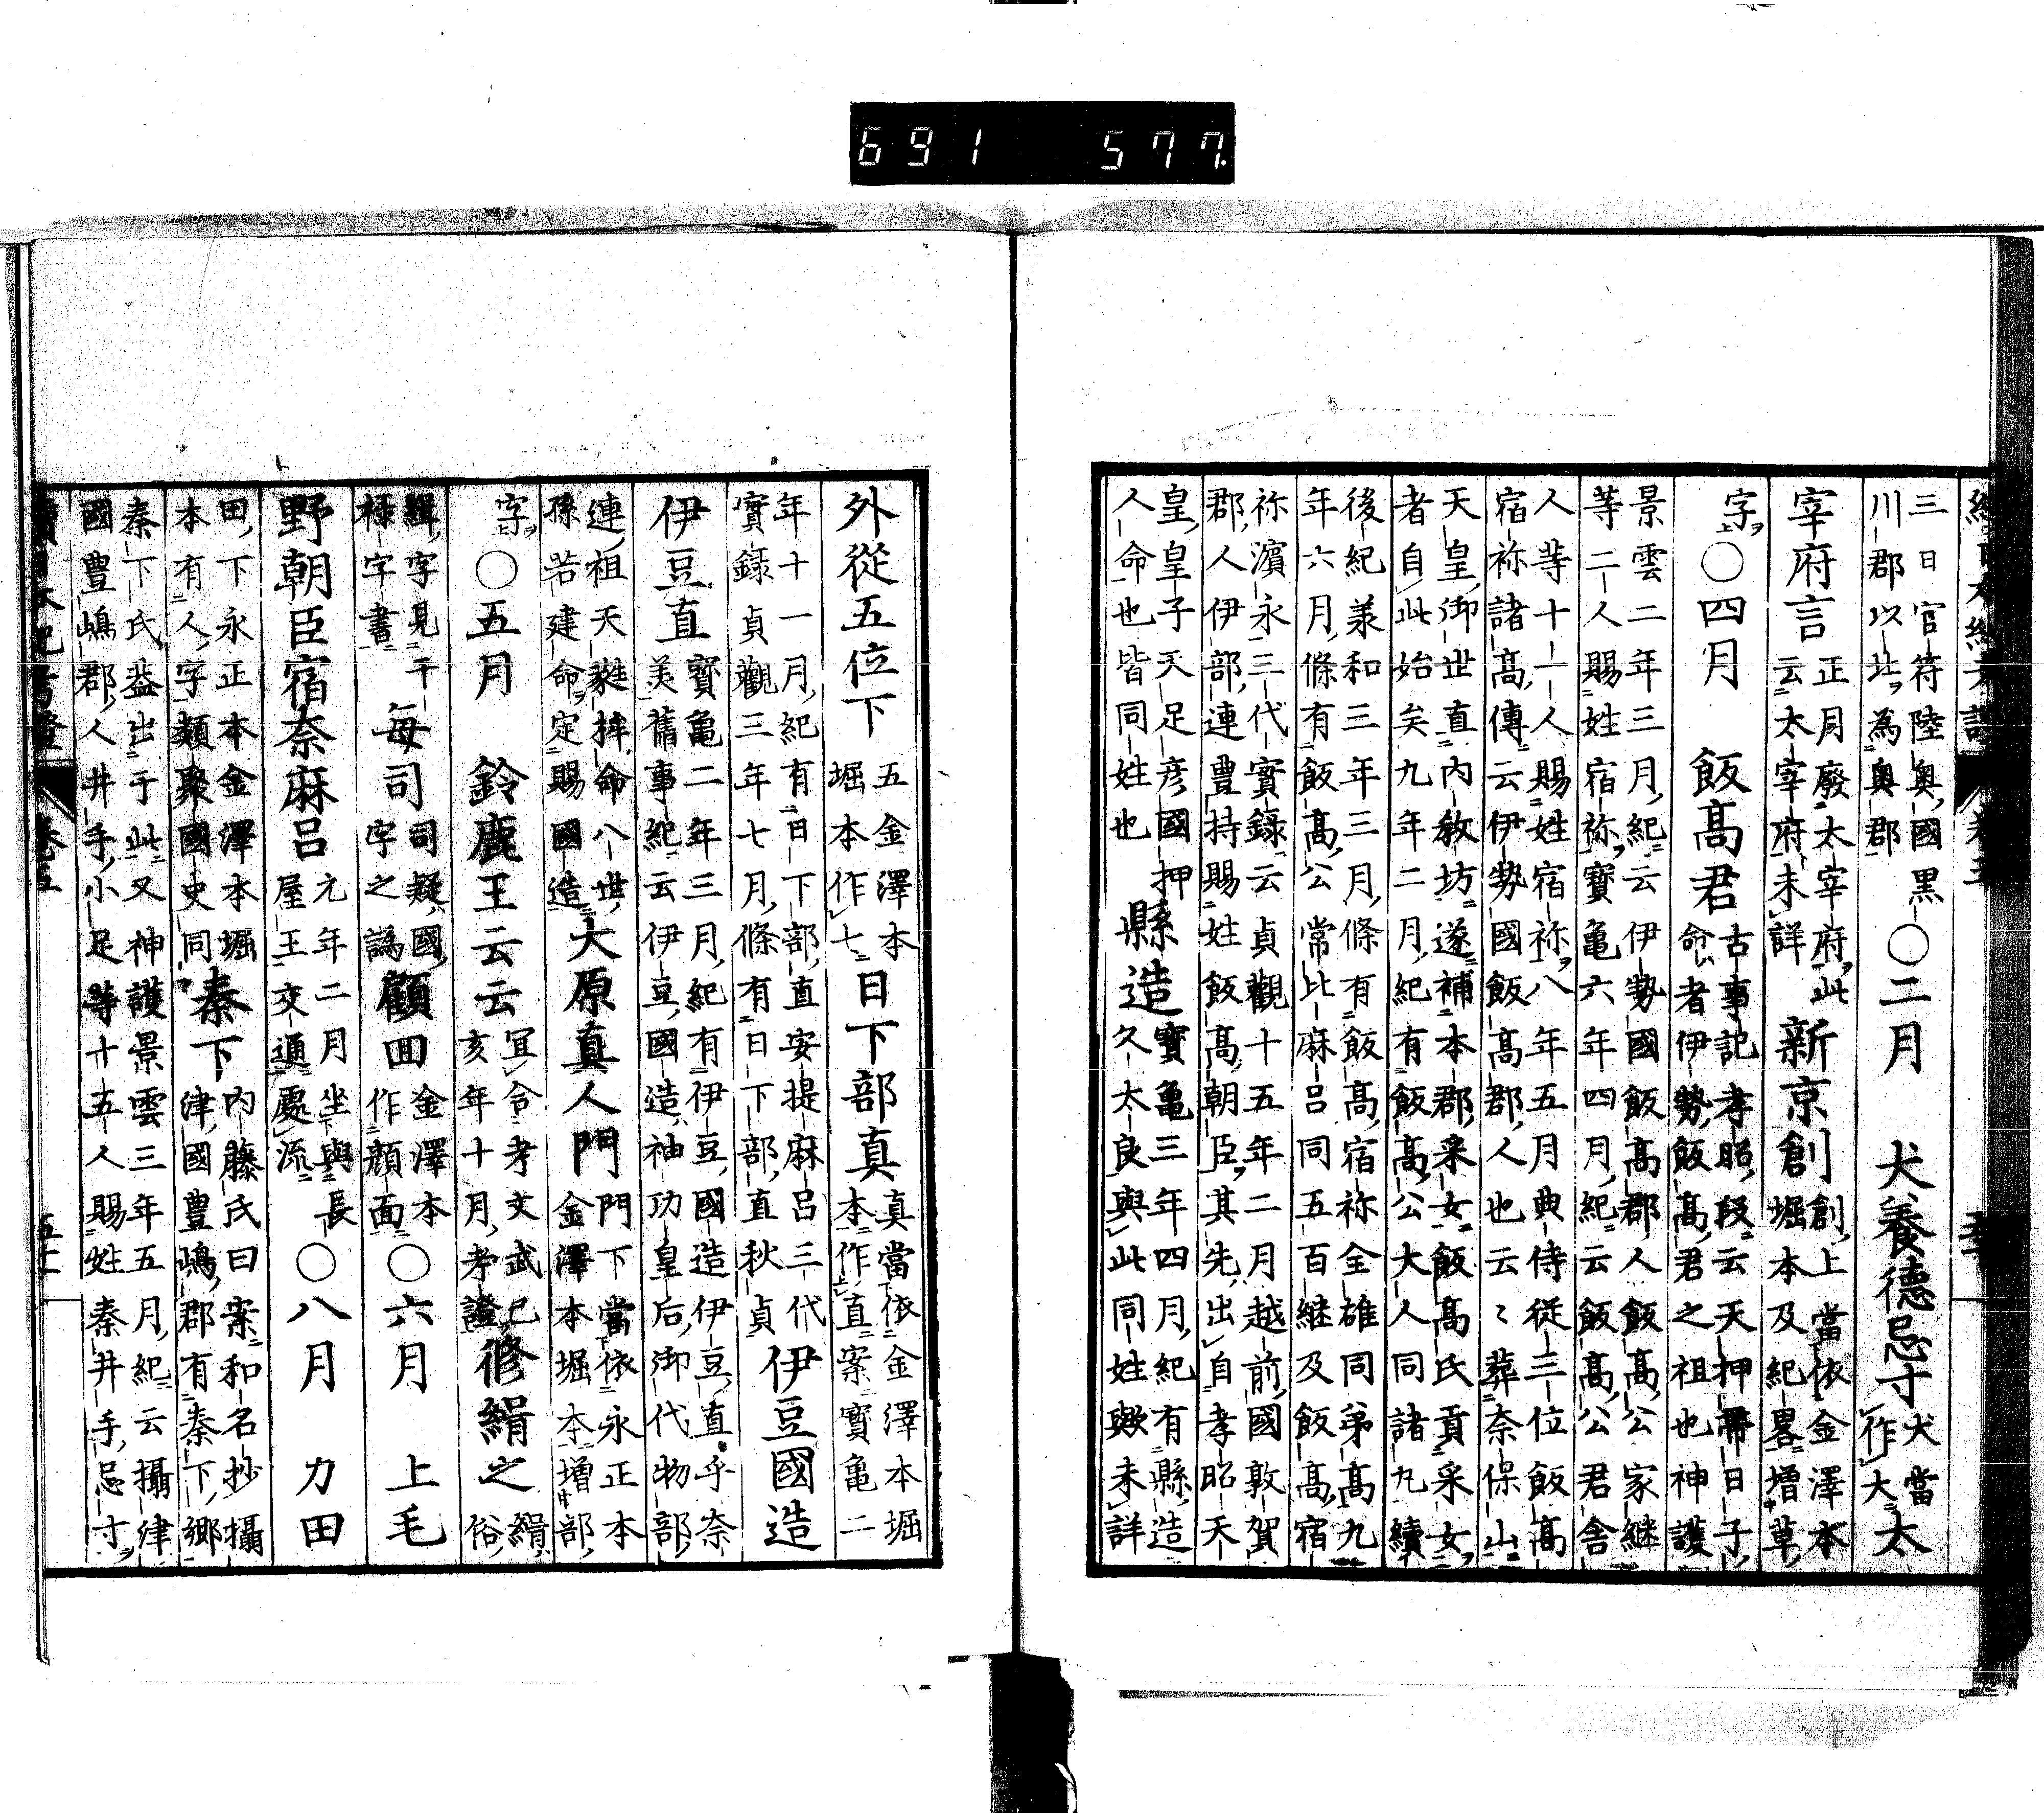 691 577.
三日官符陸奥國黒
川郡以北為奥郡
〇二月 犬養德忌寸
犬當
作大
太
宰府言
正月廢太宰府此
云太宰府未詳
新京創
創上當依金澤本
堀本及紀畧增草
字
〇四月 飯髙君
古事記孝昭段云天押帶日子
命者伊勢飯髙君之祖也神護
景雲二年三月紀云伊勢國飯髙郡人飯髙公家継
等二人賜姓宿祢寶亀六年四月紀云飯髙公君舎
人等十一人賜姓宿祢八年五月典侍從三位飯髙
宿祢諸髙傳云伊勢國飯髙郡人也云〻葬奈保山
天皇御世直内教坊遂補本郡采女飯髙氏貢采女
者自此始矣九年二月紀有飯髙公大人同諸丸續
後紀羕和三年三月條有飯髙宿祢全雄同弟髙九
年六月條有飯髙公常比麻呂同五百継及飯髙宿
祢濱永三代實録云貞觀十五年二月越前國敦賀
郡人伊部連豊持賜姓飯髙朝臣其先出自孝昭天
皇皇子天足彦國押
人命也皆同姓也
縣造
寶亀三年四月紀有縣造
久太良與此同姓歟未詳
外從五位下
五金澤本
堀本作七
日下部真
真當依金澤本堀
本作直案寶亀二
年十一月紀有日下部直安提麻呂三代
實録貞觀三年七月條有日下部直秋貞
伊豆國造
伊豆直
寶亀二年三月紀有伊豆國造伊豆直乎奈
美舊事紀云伊豆國造神功皇后御代物部
連祖天蕤桙命八世
孫若建命定賜國造
大原真人門
門下當依永正本
金澤本堀本增部
字
〇五月 鈴鹿王云云
冝令考文武己
亥年十月考證
修緝之
緝
俗
緝字見干
祿字書
每司
司疑國
字之譌
顧面
金澤本
作顔面
〇六月 上毛
野朝臣宿奈麻呂
元年二月坐與長
屋王交通處流
〇八月 力田
田下永正本金澤本堀
本有人字類聚國史同
秦下
内藤氏曰案和名抄攝
津國豊嶋郡有秦下郷
秦下氏葢出于此又神護景雲三年五月紀云攝津
國豊嶋郡人井手小足等十五人賜姓秦井手忌寸